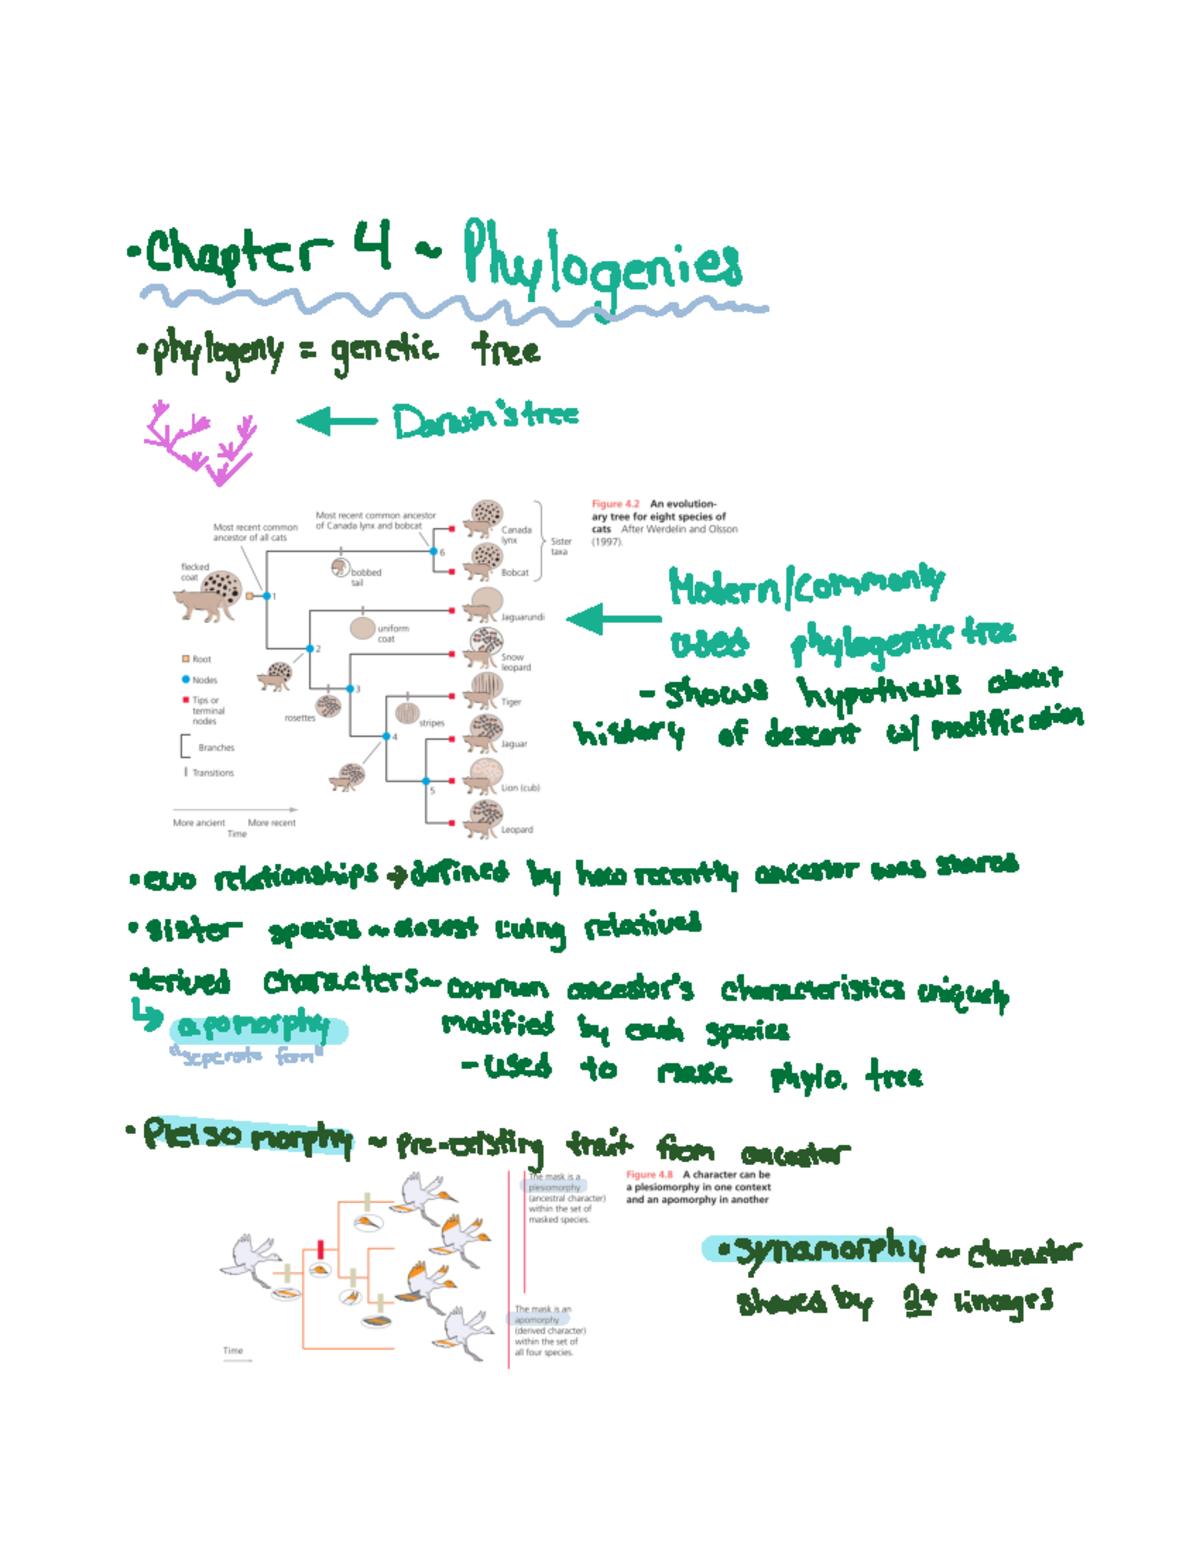 •Chapter 4 ~ Phylogenies
•phylogeny = genetic tree
Darwin's tree
Figure 4.2 An evolution-
ary tree for eight species of
cats After Werdelin and Olsson
(1997).
Most recent common
ancestor of all cats
Most recent common ancestor
of Canada lynx and bobcat
flecked
coat
1
6
bobbed
tail
Canada
lynx
Sister
taxa
Bobcat
Jaguarundi
uniform
coat
2
Snow
leopard
3
rosettes
Tiger
stripes
4
Jaguar
Lion (cub)
5
Leopard
Root
Nodes
Tips or
terminal
nodes
Branches
Transitions
More ancient More recent
Time
Modern/commonly
used phylogentic tree
- shows hypothesis about
history of descent w/ modification
•evo relationships → defined by how recently ancestor was shared
•sister species ~ closest living relatives
•derived characters ~ common ancestor's characteristics uniquely
modified by each species
- used to make phylo. tree
↳ apomorphy
"seperate form"
•Pleisomorphy ~ pre-existing trait from ancestor
The mask is a
plesiomorphy
(ancestral character)
within the set of
masked species.
Figure 4.8 A character can be
a plesiomorphy in one context
and an apomorphy in another
The mask is an
apomorphy
(derived character)
within the set of
all four species.
Time
•synamorphy ~ character
shares by 2+ linages